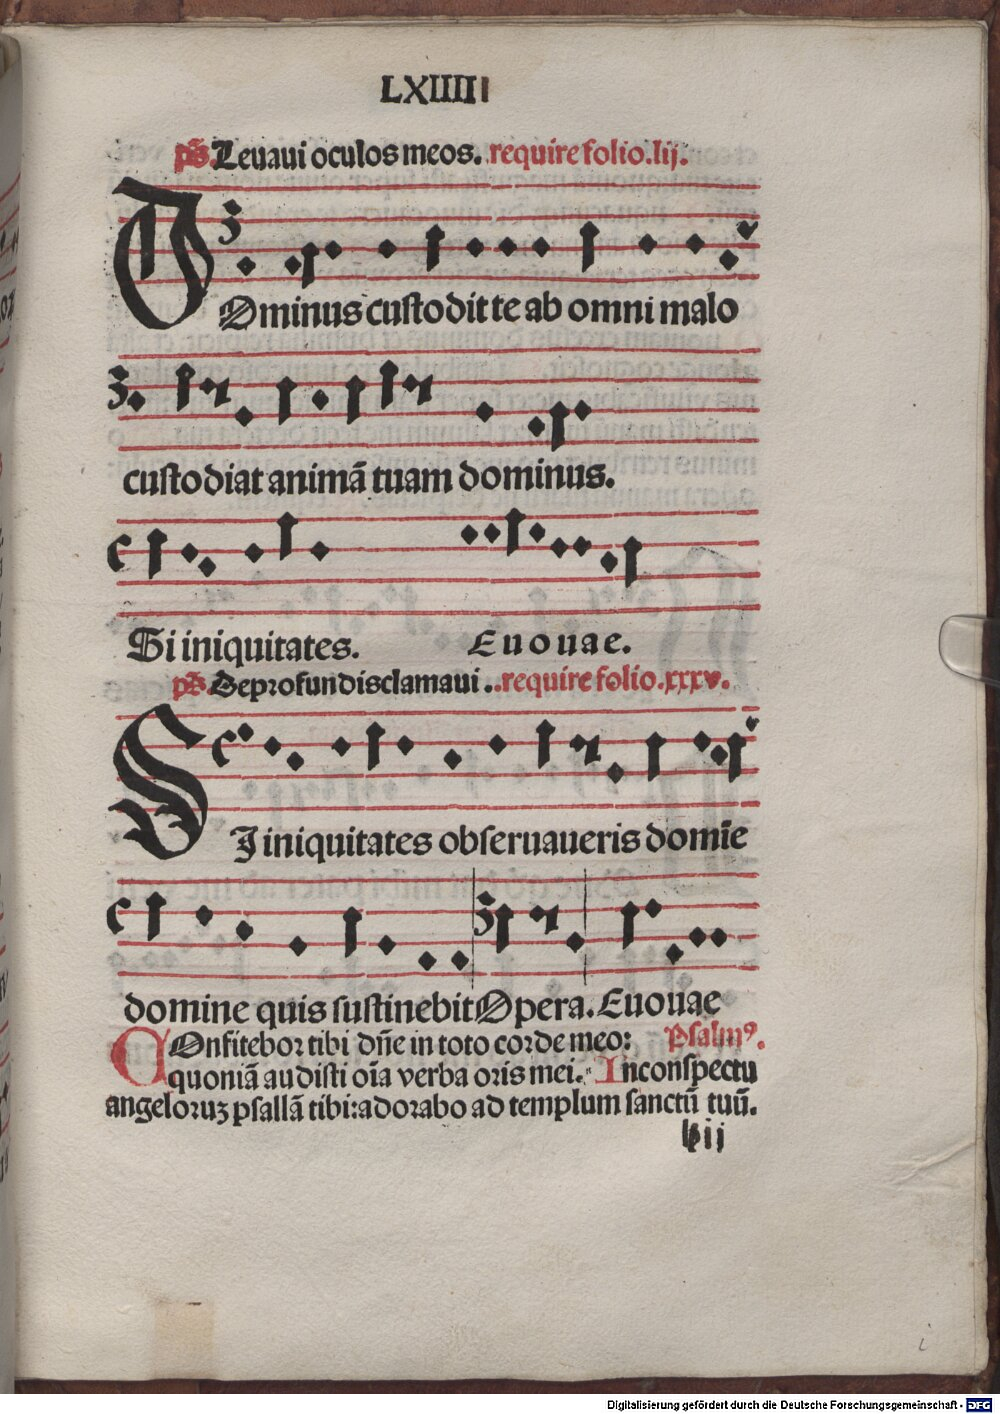 LXIIIII
ps̄. Leuaui oculos meos. require folio. lij.
Dominus custodit te ab omni malo
custodiat animā tuam dominus.
Si iniquitates. Euouae.
ps̄. De profundis clamaui .. require folio. xxxv.
SI iniquitates obseruaueris domīe
domine quis sustinebit Opera. Euouae
COnfitebor tibi dn̄e in toto corde meo: Psalmꝰ.
quoniā audisti oīa verba oris mei. Inconspectu
angeloruꝫ psallā tibi: adorabo ad templum sanctū tuū.
Digitalisierung gefördert durch die Deutsche Forschungsgemeinschaft - DFG